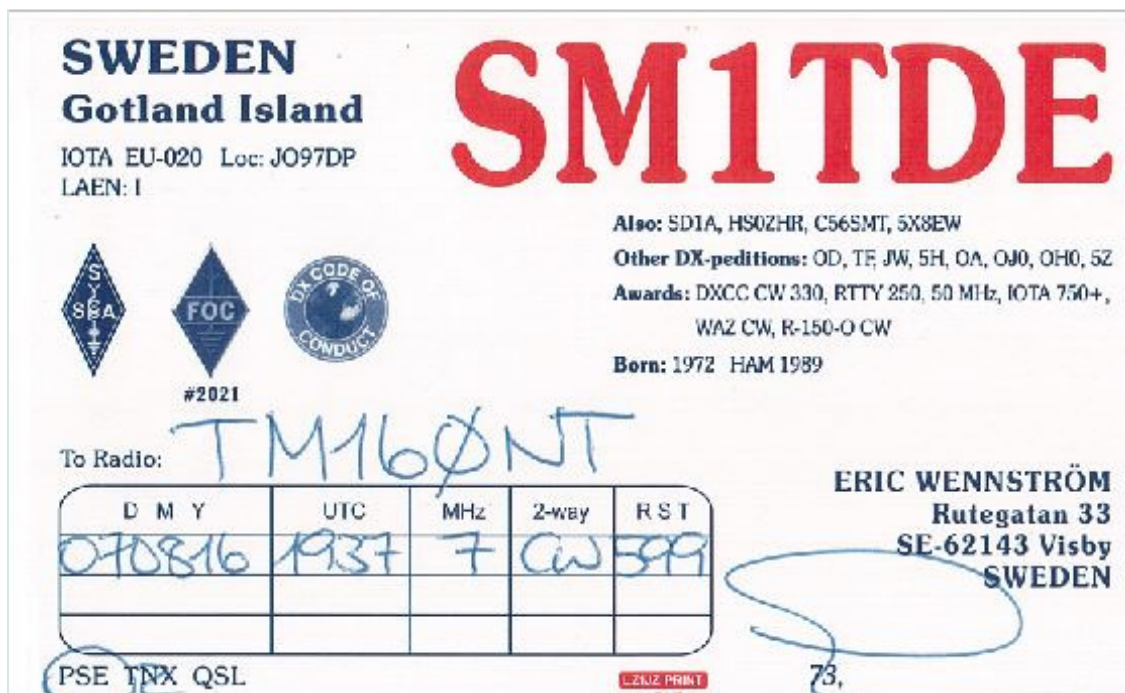 SWEDEN
Gotland Island
IOTA EU-020 Loc: JO97DP
LAEN: I
SM1TDE
Also: SD1A, HS0ZHR, C56SMT, 5X8EW
Other DX-peditions: OD, TF, JW, 5H, OA, OJ0, OH0, 5Z
Awards: DXCC CW 330, RTTY 250, 50 MHz, IOTA 750+,
WAZ CW, R-150-O CW
Born: 1972 HAM 1989
FOC
DX CODE OF
CONDUCT
#2021
To Radio: TM16ØNT
D M Y UTC MHz 2-way RST
070816 1937 7 CW 599
ERIC WENNSTRÖM
Rutegatan 33
SE-62143 Visby
SWEDEN
PSE TNX QSL
LZ1JZ PRINT
73,